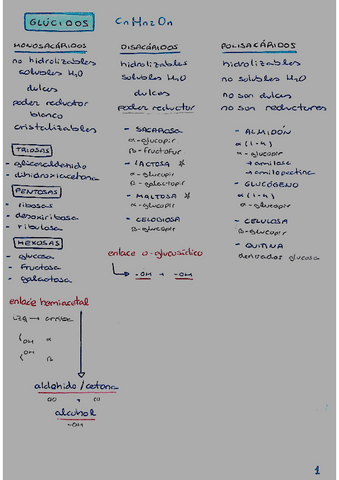 GLÚCIDOS CnHn2On
MONOSACÁRIDOS
no hidrolizables
solubles H2O
dulces
poder reductor
blanco
cristalizables
TRIOSAS
- gliceraldehído
- dihidroxiacetona
PENTOSAS
- ribosas
- desoxiribosa
- ribulosa
HEXOSAS
- glucosa
- fructosa
- galactosa
enlace hemiacetal
OH α
OH β
aldehído / cetona
CO
alcohol
-OH
DISACÁRIDOS
hidrolizables
solubles H2O
dulces
poder reductor
- SACAROSA
α-glucopir
β-fructofur
- LACTOSA *
α-glucopir
β-galactopir
- MALTOSA *
α-glucopir
- CELOBIOSA
β-glucopir
enlace o-glucosídico
-OH + -OH
POLISACÁRIDOS
hidrolizables
no solubles H2O
no son dulces
no son reductores
- ALMIDÓN
α-glucopir
→ amilosa
→ amilopectina
- GLUCÓGENO
α-glucopir
- CELULOSA
β-glucopir
- QUITINA
derivados glucosa
1